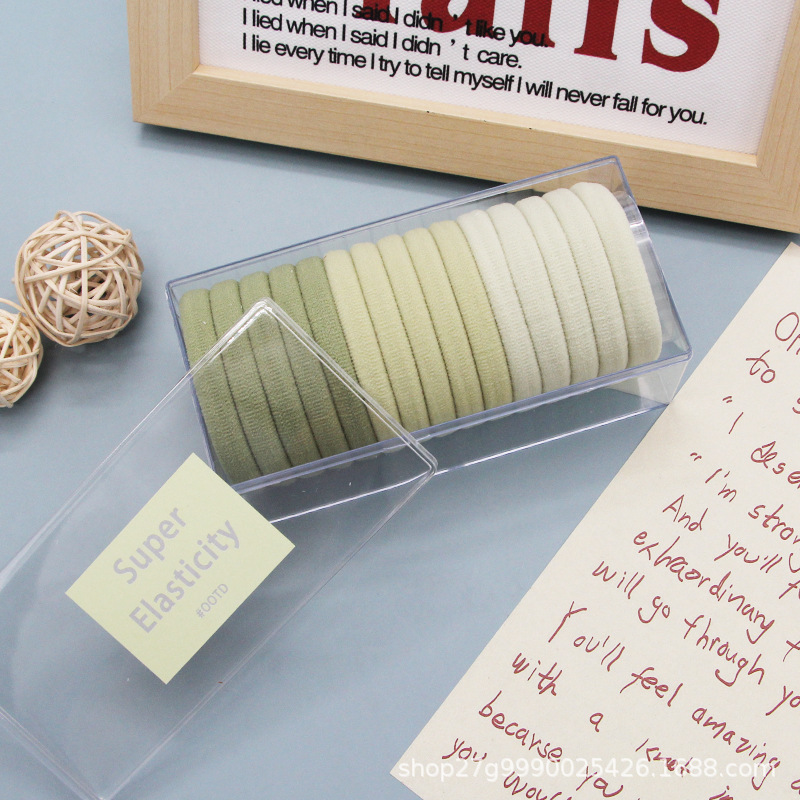 lied when I said I didn't like you.
I lied when I said I didn't care.
I lie every time I try to tell myself I will never fall for you.
Super
Elasticity
#OOTD
to
"I
"I'm
And you'll
extraordinary
will go through
You'll feel amazing
with a
because you
you
shop27g9990025426.1688.com